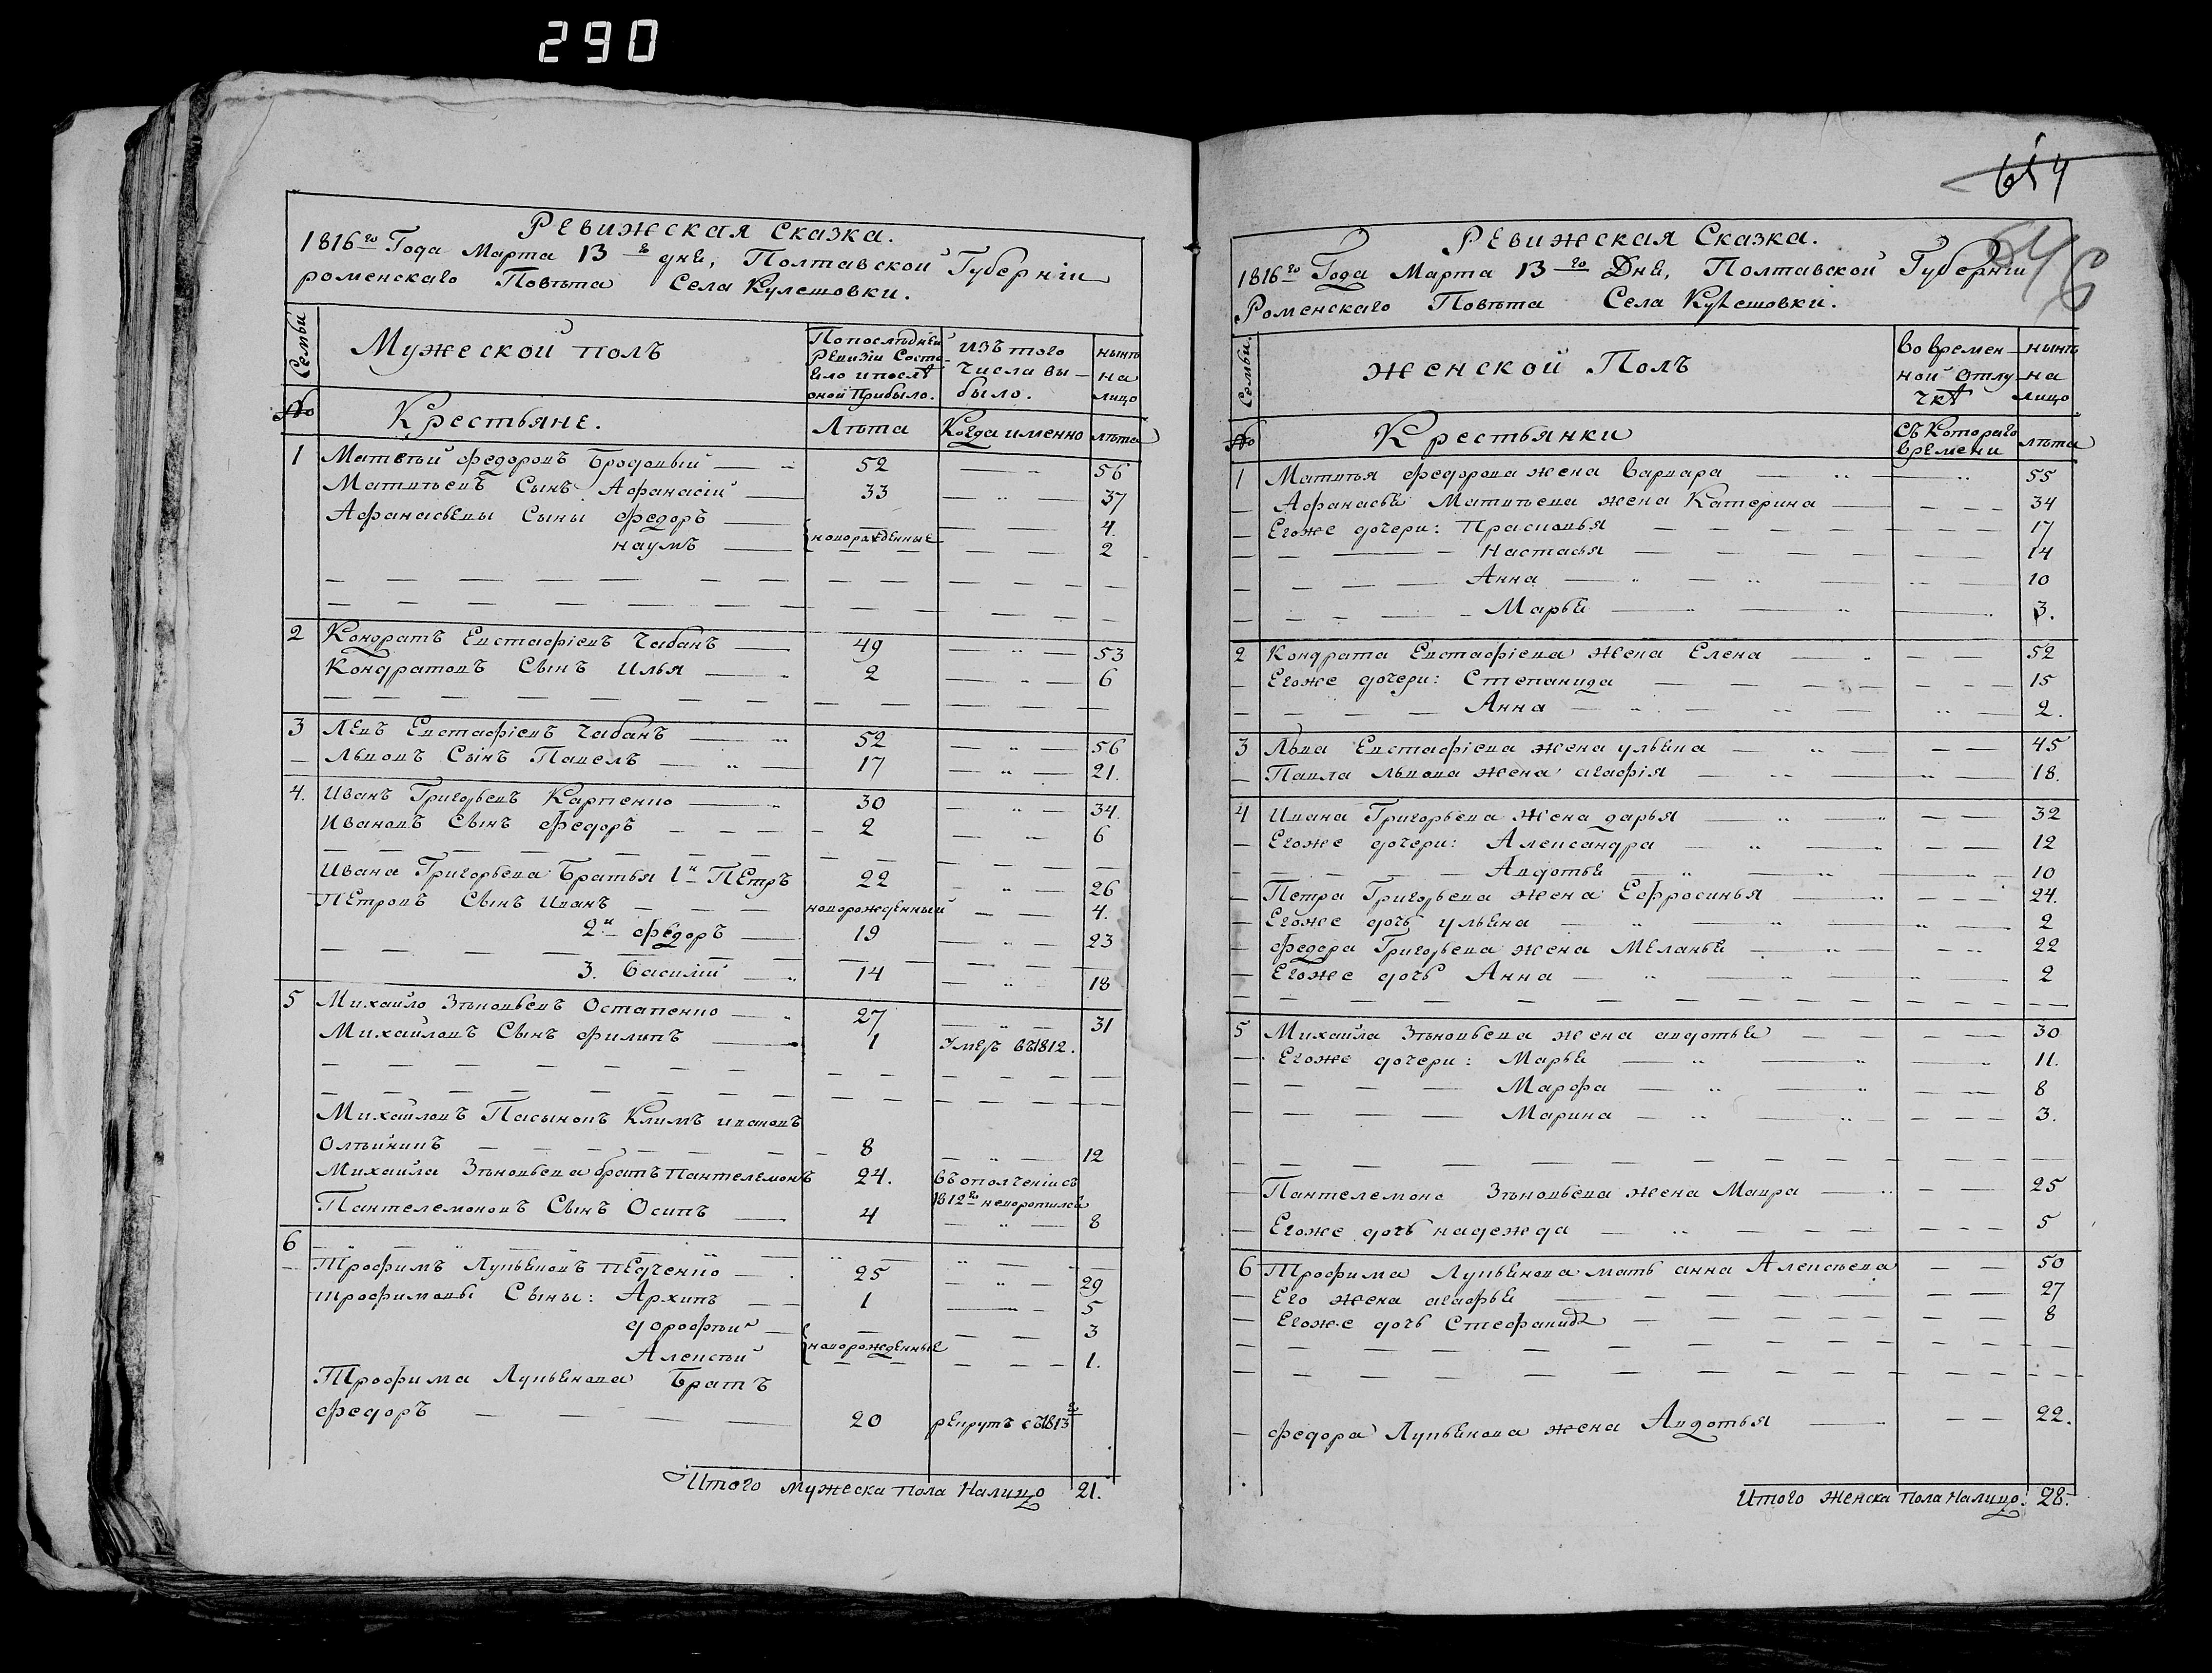 290
Ревижская Сказка.
1816го Года Марта 13го дня, Полтавской Губернiи
роменскаго Повѣта Села Кулешовки.
Семьи
Мужеской полъ
По послѣдней Ревизiи Состояло и послѣ оной Прибыло.
Изъ того числа выбыло.
нынѣ на лицо
№
Крестьяне.
Лѣта
Когда именно
лѣта
1 Матвѣй Федоровъ Бродовый 52 56
Матвѣевъ Сынъ Афанасiй 33 37
Афанасьевы Сыны Федоръ 4.
новорожденные
наумъ 2
2 Кондратъ Евстафiевъ Чабанъ 49 53
Кондратовъ Сынъ Илья 2 6
3 Левъ Евстафiевъ Чабанъ 52 56
Львовъ Сынъ Павелъ 17 21.
4. Иванъ Григорьевъ Карпенко 30 34.
Ивановъ Сынъ Федоръ 2 6
Ивана Григорьева Братья 1й Петръ 22 26
Петровъ Сынъ Иванъ новорожденный 4.
2й Федоръ 19 23
3. Василiй 14 18
5 Михайло Зѣновьевъ Остапенко 27 31
Михайловъ Сынъ Филипъ 1 Умеръ въ 1812.
Михайловъ Пасынокъ Климъ ивановъ
Олѣйникъ 8 12
Михайла Зѣновьева братъ Пантелемонъ 24. въ ополченiи съ
1812го неворотился
Пантелемоновъ Сынъ Осипъ 4 8
6
Трофимъ Лукьяновъ Педченко 25 29
трофимовы Сыны: Архипъ 1 5
дорофѣй 3
новорожденные
Алексѣй 1.
Трофима Лукьянова Братъ
Федоръ 20 рекрутъ съ 1813го
Итого мужеска пола Налицо 21.
614
646
Ревижская Сказка.
1816го Года Марта 13го Дня, Полтавской Губернiи
Роменскаго Повѣта Села Кулешовки.
Семьи.
женской Полъ
Во временной отлучкѣ
нынѣ на лицо
№
Крестьянки
Съ Котораго времени
лѣта
1 Матвѣя Федорова жена Варвара 55
Афанасья Матвѣева жена Катерина 34
Егоже дочери: Прасковья 17
Настасья 14
Анна 10
Марья 3.
2 Кондрата Евстафiева жена Елена 52
Егоже дочери: Степанида 15
Анна 2.
3 Льва Евстафiева жена ульяна 45
Павла Львова жена агафiя 18.
4 Ивана Григорьева жена дарья 32
Егоже дочери: Александра 12
Авдотья 10
Петра Григорьева жена Ефросинья 24.
Егоже дочь ульяна 2
Федора Григорьева жена Меланья 22
Егоже дочь Анна 2
5 Михайла Зѣновьева жена авдотья 30
Егоже дочери: Марья 11.
Марфа 8
Марина 3.
Пантелемона Зѣновьева жена Мавра 25
Егоже дочь надежда 5
6 Трофима Лукьянова мать анна Алексѣева 50
Его жена агафья 27
Егоже дочь Стефанида 8
Федора Лукьянова жена Авдотья 22.
Итого женска пола Налицо. 28.